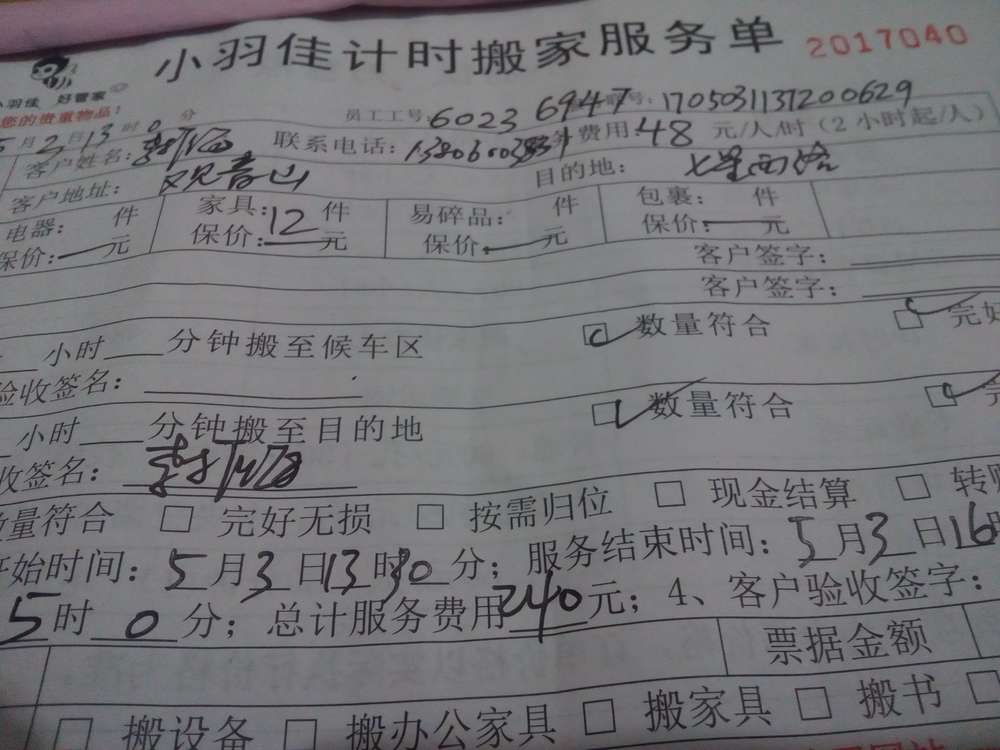 小羽佳计时搬家服务单 2017040
小羽佳 好管家
您的贵重物品!
员工工号: 6023 6947 号: 1705031137200629
月2日13时0分
客户姓名: 联系电话: 费用: 48 元/人/时(2小时起/人)
客户地址: 观音山 目的地:
电器: 件 家具: 12 件 易碎品: 件 包裹: 件
保价: 元 保价: 元 保价: 元 保价: 元
客户签字:
客户签字:
小时 分钟搬至候车区 数量符合 完好
验收签名:
小时 分钟搬至目的地 数量符合
收签名:
数量符合 □ 完好无损 □ 按需归位 □ 现金结算 □ 转账
开始时间: 5月3日13时30分; 服务结束时间: 5月3日16
5时0分; 总计服务费用240元; 4、客户验收签字:
票据金额
□ 搬设备 □ 搬办公家具 □ 搬家具 □ 搬书 □